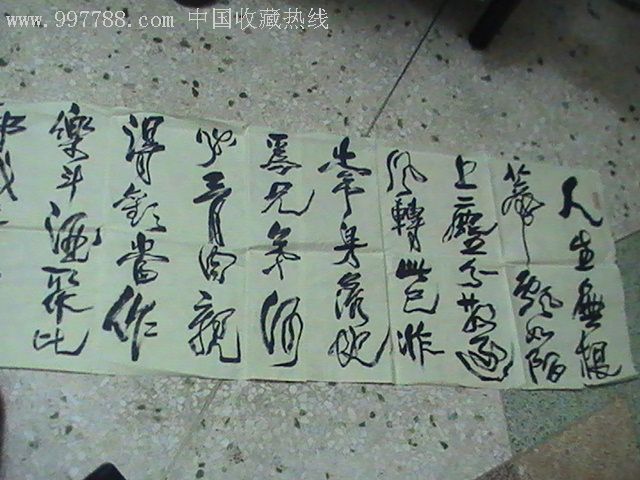 www.997788.com 中国收藏热线
人生無根
蒂飄如陌
上塵分散逐
風轉此已非
常身落地
為兄弟何
必骨肉親
得歡當作
樂斗酒聚比